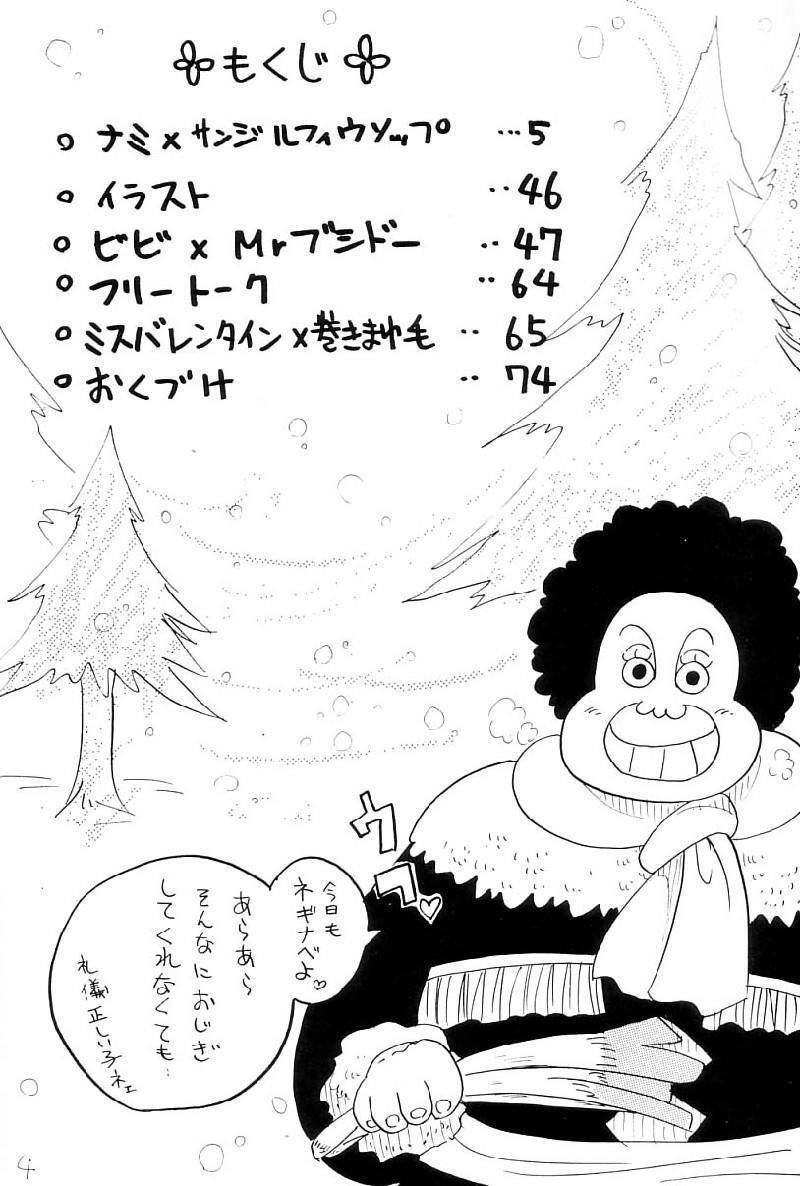 もくじ
ナミ×サンジルフィウソップ …5
イラスト ‥46
ビビ×Mrブシドー ‥47
フリートーク ‥64
ミスバレンタイン×巻きまゆ毛 ‥65
おくづけ ‥74
ウフ♡
今日も
ネギナベよ♡
あらあら
そんなにおじぎ
してくれなくても…
礼儀正しい子ネェ
4